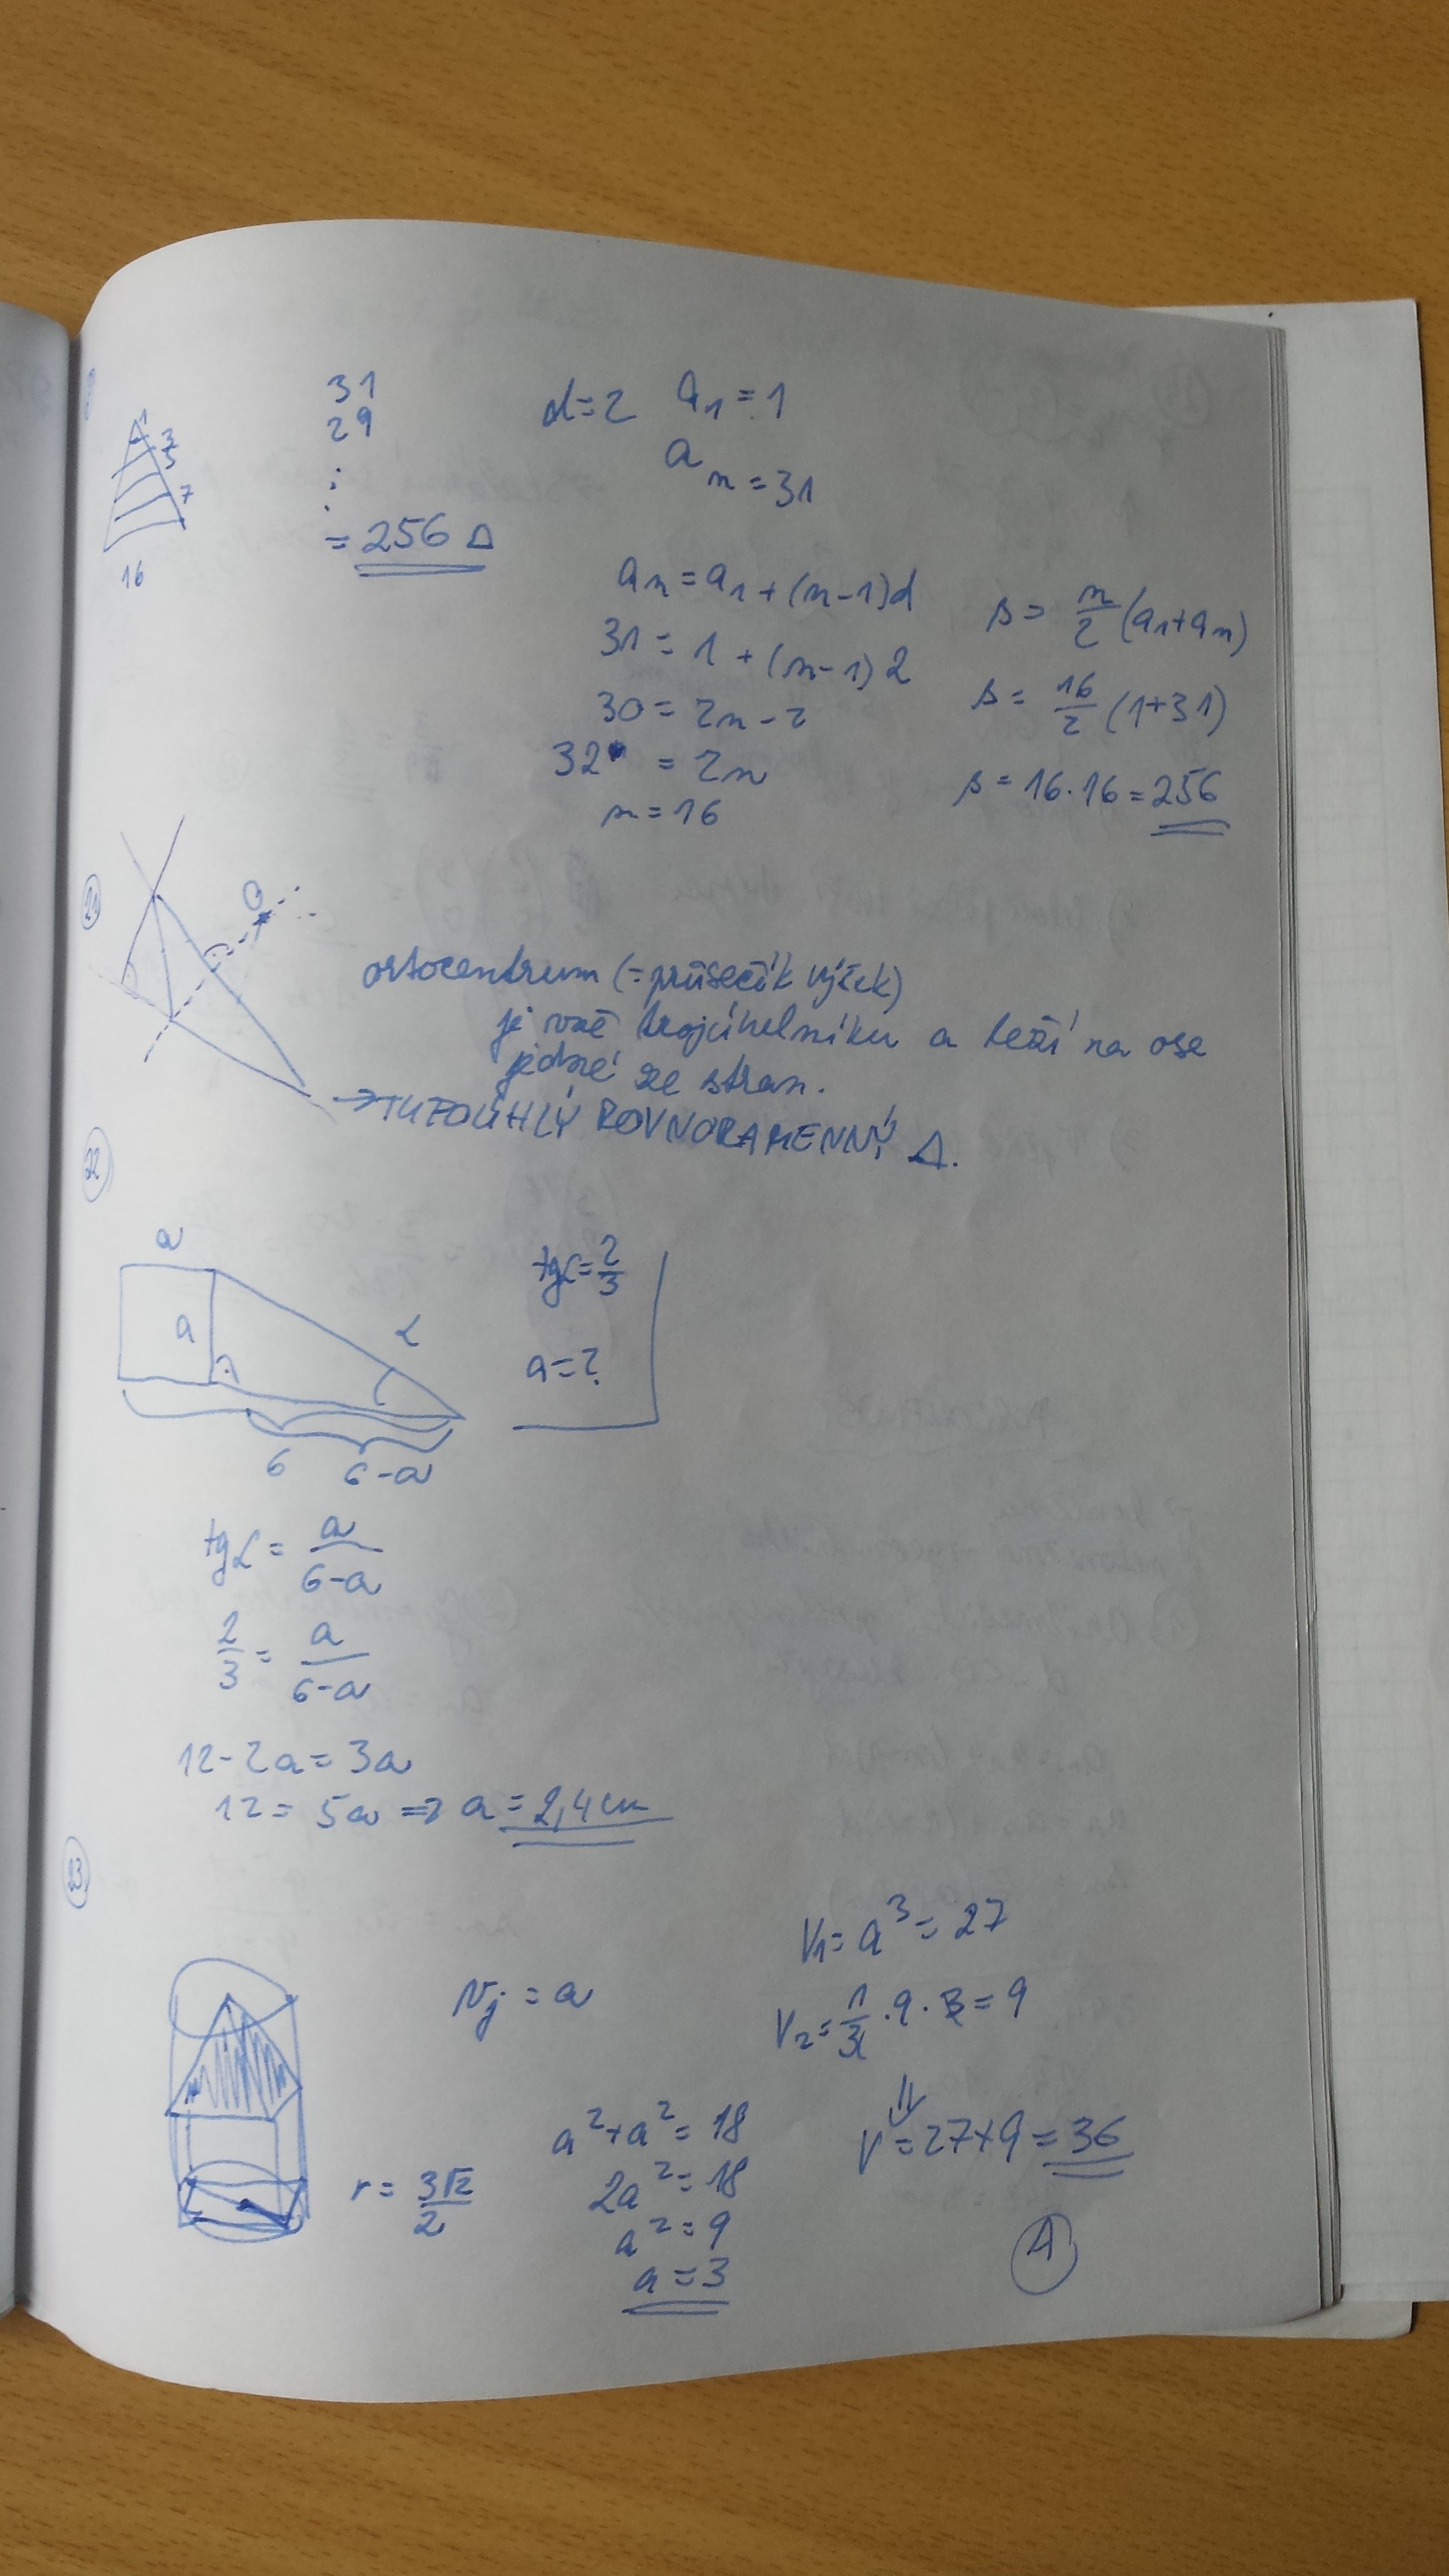 1
3
5
7
16
31
29
:
= 256 Δ
d=2 a₁=1
aₙ=31
aₙ=a₁+(n-1)d
31=1+(n-1)2
30=2n-2
32=2n
n=16
s= n/2 (a₁+aₙ)
s= 16/2 (1+31)
s=16·16=256
21
O
ortocentrum (=průsečík výšek)
je vně trojúhelníku a leží na ose
jedné ze stran.
→TUPOÚHLÝ ROVNORAMENNÝ Δ.
22
a
a
α
6 6-a
tgα=2/3
a=?
tgα= a/(6-a)
2/3 = a/(6-a)
12-2a=3a
12=5a ⇒ a=2,4cm
23
r= 3√2/2
vj=a
a²+a²=18
2a²=18
a²=9
a=3
V₁=a³=27
V₂=1/3·9·3=9
⇓
V=27+9=36
A